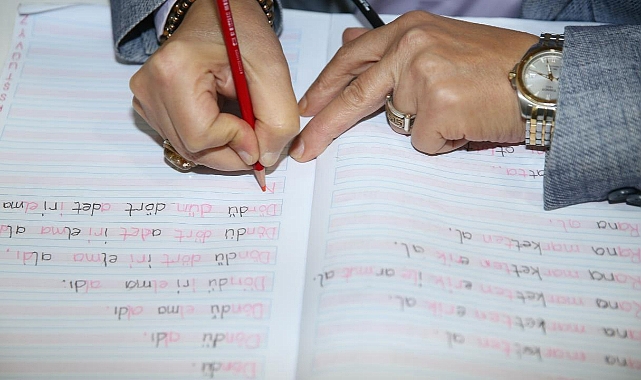 Rana marketten al.
Rana marketten erik al.
Rana marketten erik ile armut al.
Rana marketten erik al.
Rana marketten al.
Rana al.
Döndü.
Döndü aldı.
Döndü elma aldı.
Döndü iri elma aldı.
Döndü dört iri elma aldı.
Döndü dört adet iri elma aldı
Döndü dün dört adet iri elma